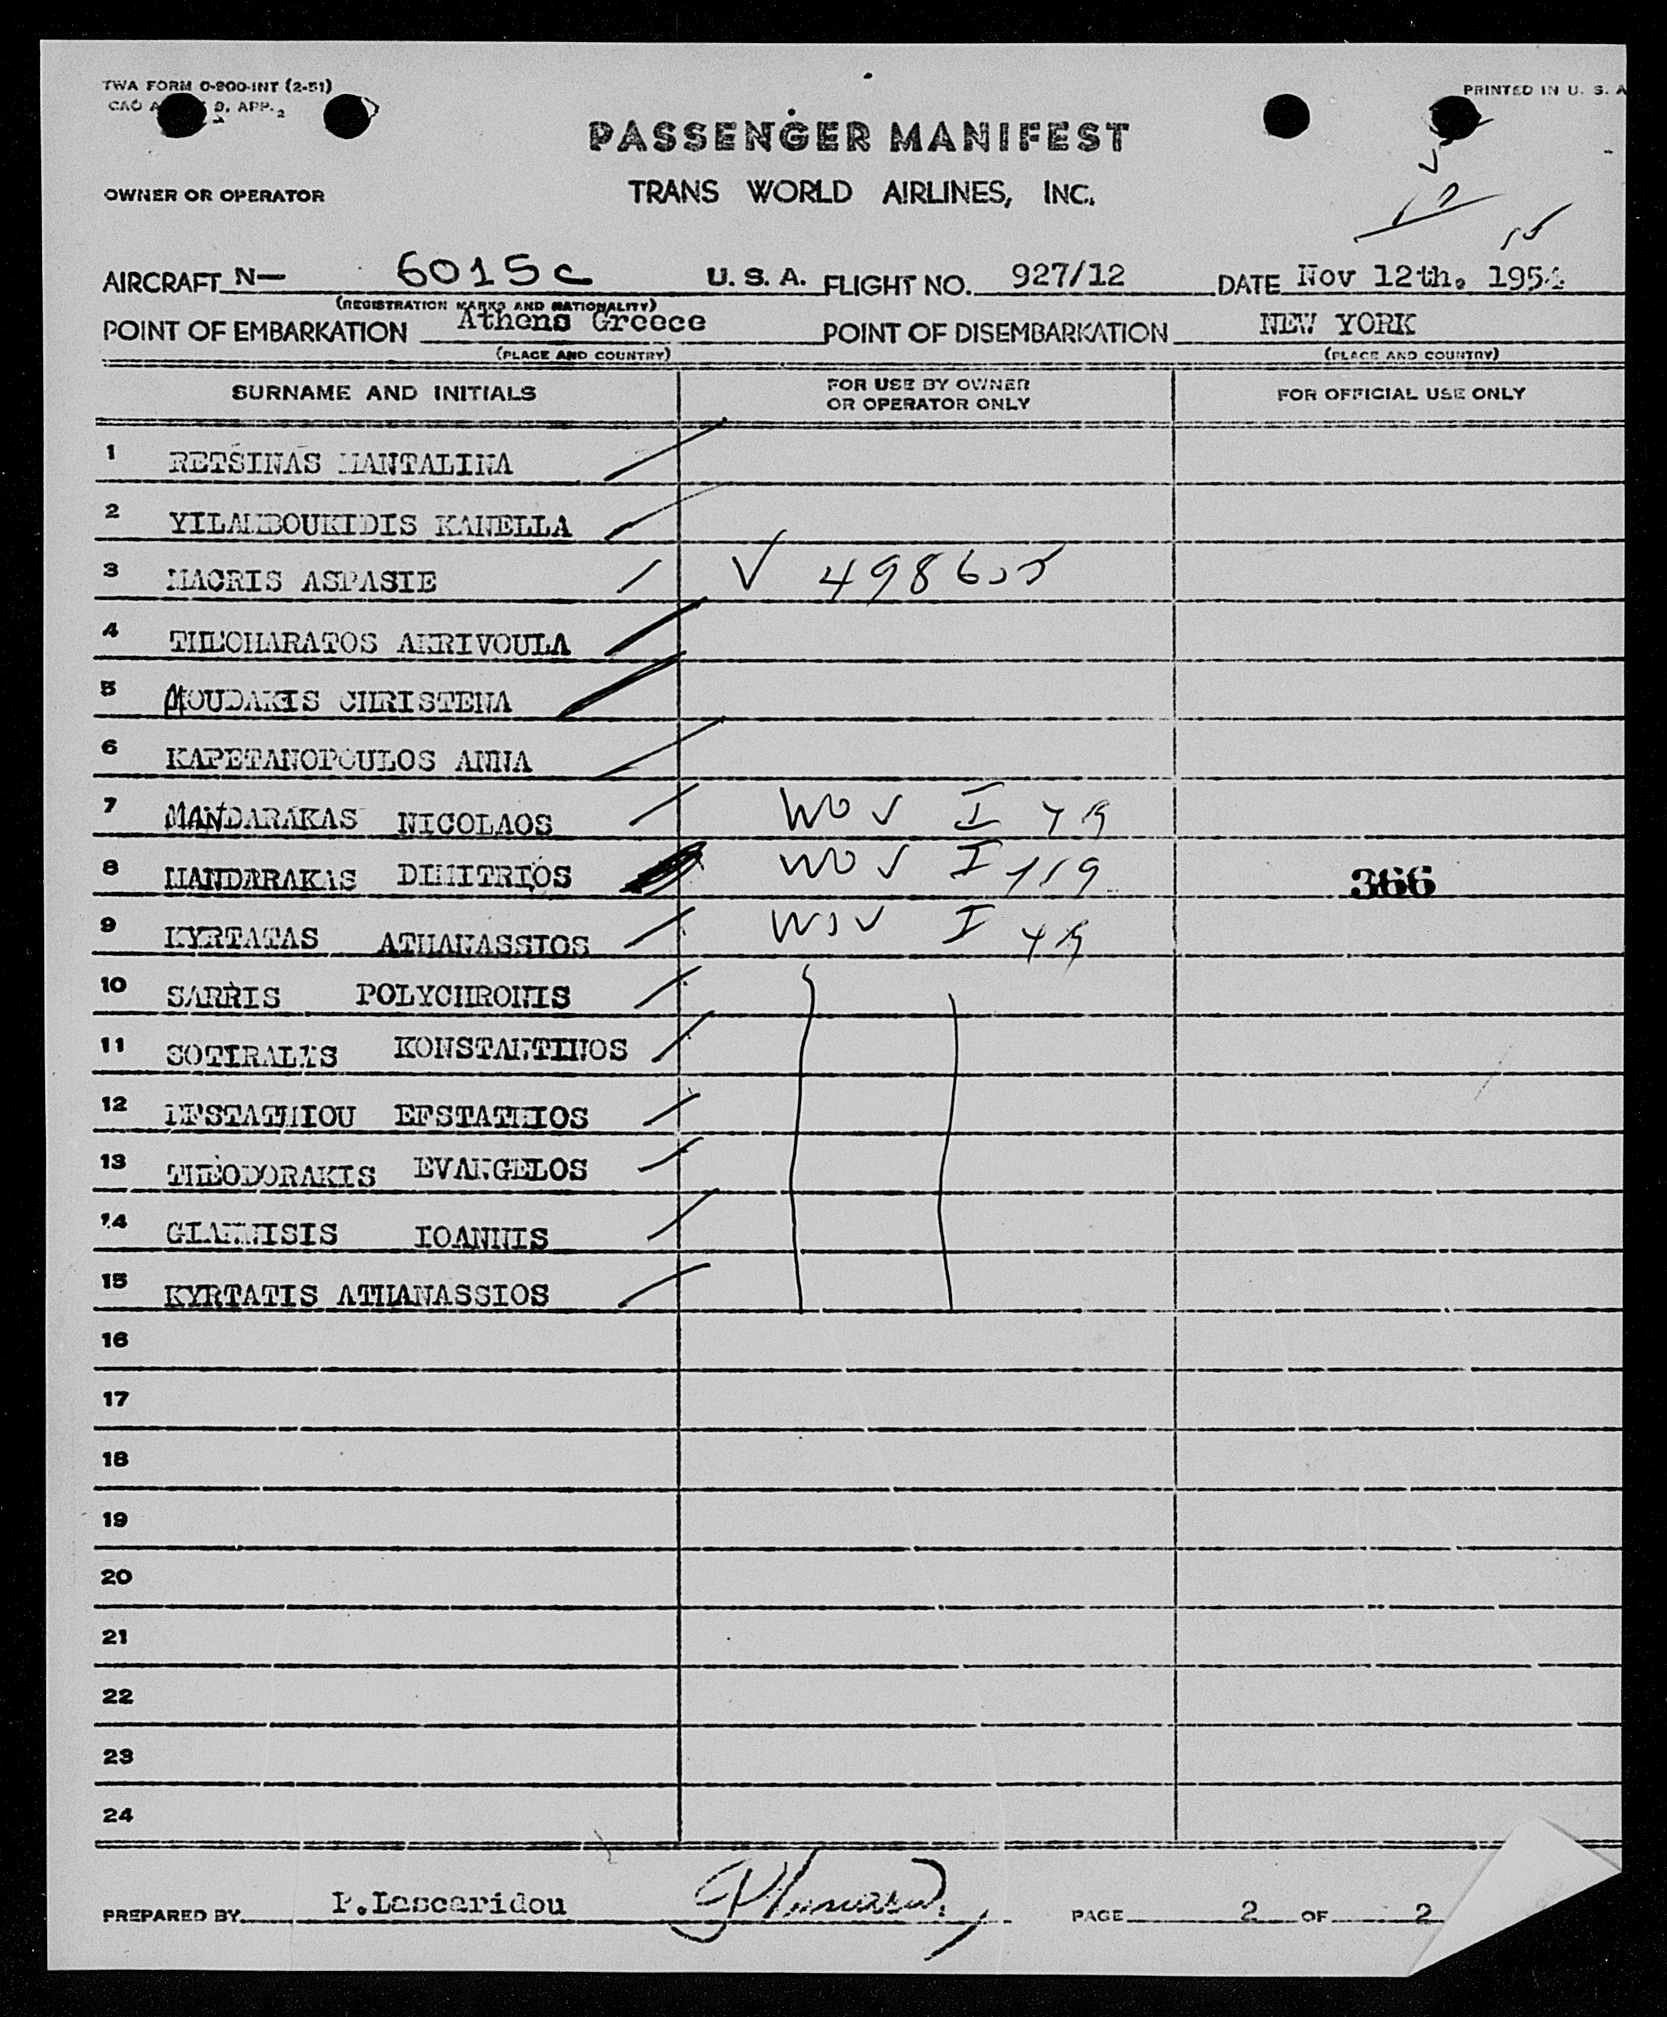 TWA FORM 0-900-INT (2-51)
PRINTED IN U. S. A
CAO 9, APP. 2
PASSENGER MANIFEST
OWNER OR OPERATOR
TRANS WORLD AIRLINES, INC.
AIRCRAFT N— 6015C U. S. A. FLIGHT NO. 927/12 DATE Nov 12th. 1954
(REGISTRATION MARKS AND NATIONALITY)
POINT OF EMBARKATION Athens Greece POINT OF DISEMBARKATION NEW YORK
(PLACE AND COUNTRY) (PLACE AND COUNTRY)
SURNAME AND INITIALS FOR USE BY OWNER OR OPERATOR ONLY FOR OFFICIAL USE ONLY
1 RETSINAS MANTALINA
2 YILAMBOUKIDIS KANELLA
3 MACRIS ASPASIE
4 THEOHARATOS AKRIVOULA
5 MOUDAKIS CHRISTENA
6 KAPETANOPOULOS ANNA
7 MANDARAKAS NICOLAOS
8 MANDARAKAS DIMITRIOS 366
9 KYRTATAS ATHANASSIOS
10 SARRIS POLYCHRONIS
11 SOTIRALIS KONSTANTINOS
12 EFSTATHIOU EFSTATHIOS
13 THEODORAKIS EVANGELOS
14 GIANNISIS IOANNIS
15 KYRTATIS ATHANASSIOS
16
17
18
19
20
21
22
23
24
PREPARED BY P.Lascaridou PAGE 2 OF 2